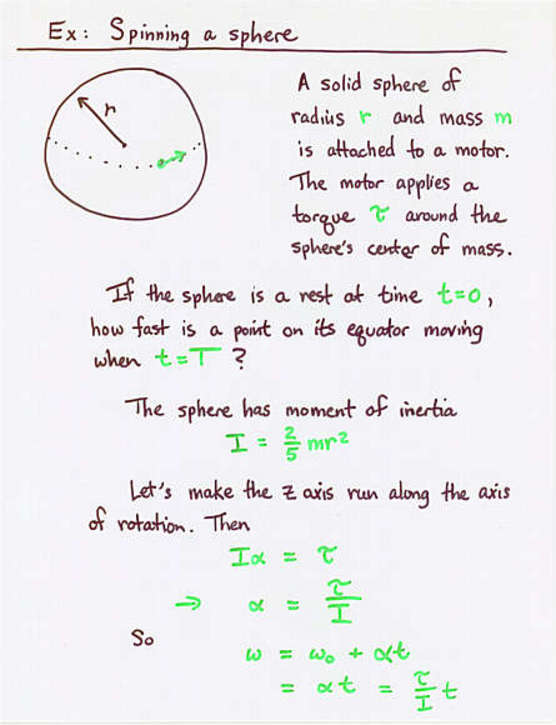 Ex: Spinning a sphere
r
A solid sphere of
radius r and mass m
is attached to a motor.
The motor applies a
torque τ around the
sphere's center of mass.
If the sphere is a rest at time t=0,
how fast is a point on its equator moving
when t=T ?
The sphere has moment of inertia
I = 2/5 mr²
Let's make the z axis run along the axis
of rotation. Then
Iα = τ
⇒ α = τ/I
So
ω = ω₀ + αt
= αt = τ/I t